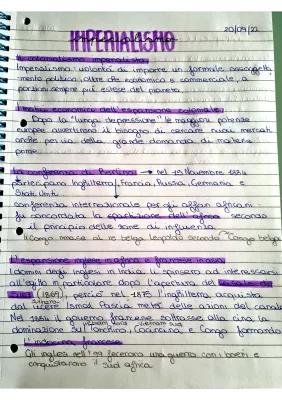 20/09/22
IMPERIALISMO
Imperialismo: volontà di imporre un formale assoggetta-
mento politico, oltre che economico e commerciale, a
porzioni sempre più estese del pianeta.
I motivi economici dell'espansione coloniale:
Dopo la "lunga depressione" le maggiori potenze
europee avvertirono il bisogno di cercare nuovi mercati
anche per via della grande domanda di materie
prime.
La conferenza di Berlino → nel 15 Novembre 1884
partecipano Inghilterra, Francia, Russia, Germania e
Stati Uniti
conferenza internazionale per gli affari africani
fu concordata la spartizione dell'africa secondo
il principio delle zone di influenza.
Il Congo rimase al re belga Leopoldo secondo "Congo belga
L'espansione inglese in africa e francese in asia
I domini degli inglesi in India li spinsero ad interessarsi
all'egitto in particolare dopo l'apertura del canale di
Suez (1869), perciò nel 1875 l'inghilterra acquista
dal vicerè Ismail Pascià metà delle azioni del canale
Nel 1884 il governo francese sottrasse alla cina la
dominazione sul Tonchino, Cocincina, e Congo formando
L'indocina francese
Gli inglesi nell'99 fecero una guerra con i boeri e
conquistarono il sud africa